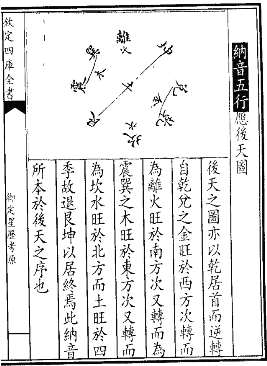 欽定四庫全書
御定星歷考原
納音五行應後天圖
離火
坤
兌
金
乾
坎水
艮
震
木
巽
土
後天之圖亦以乾居首而逆轉
自乾兌之金旺於西方次又轉而
為離火旺於南方次又轉而為
震巽之木旺於東方次又轉而
為坎水旺於北方而土旺於四
季故退艮坤以居終焉此納音
所本於後天之序也